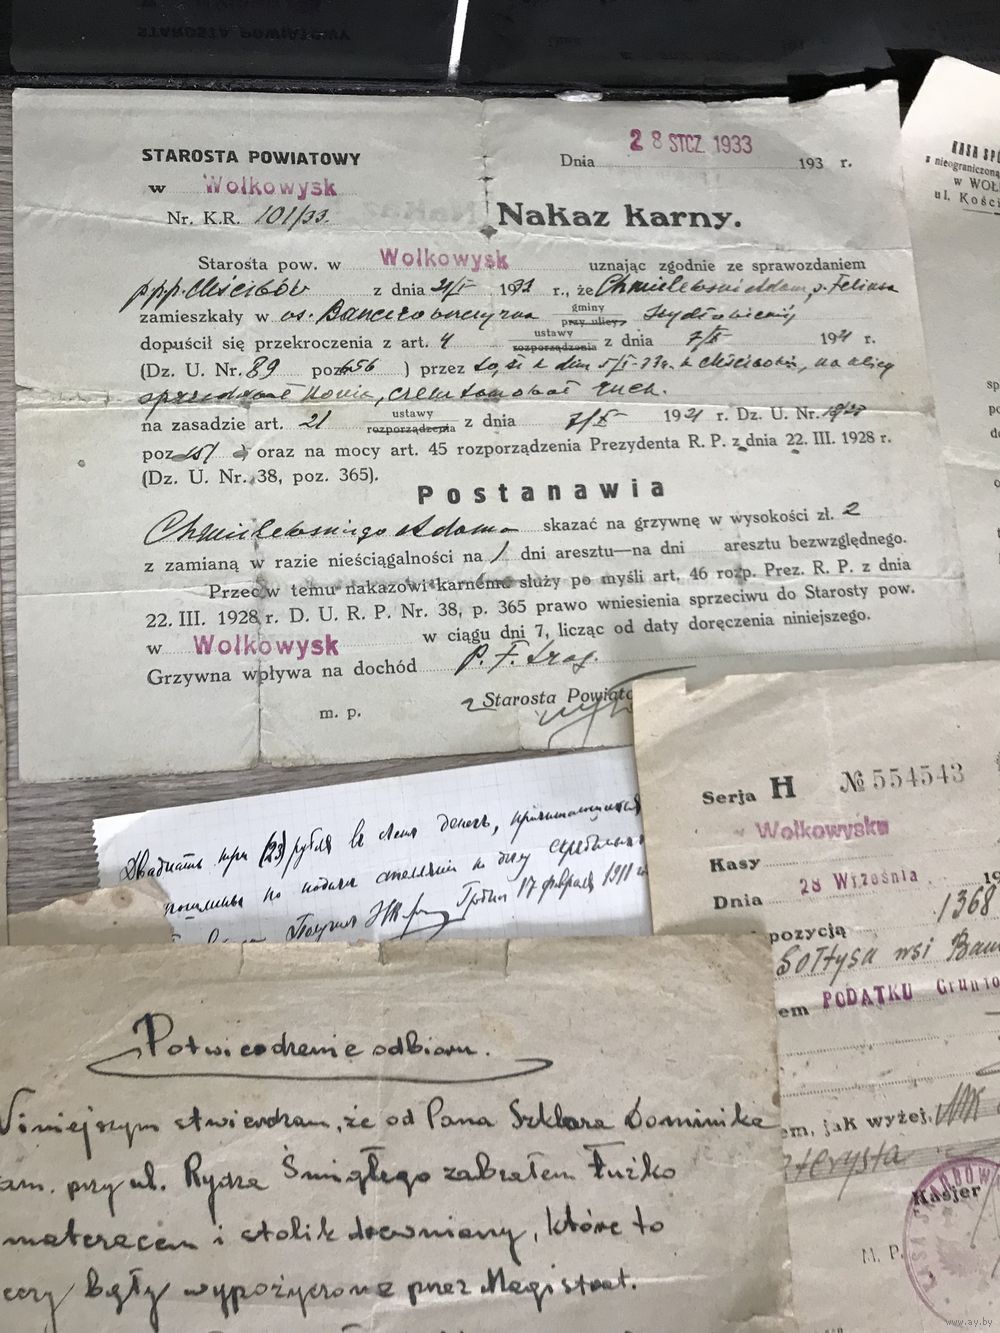 STAROSTA POWIATOWY
w Wołkowysk
Nr. K.R. 101/33.
Dnia 28 STCZ. 1933 193 r.
Nakaz karny.
Starosta pow. w Wołkowysk uznając zgodnie ze sprawozdaniem
p.p.p. Mścibów z dnia 21/I 1933 r., że Chmielewski Adam, s. Feliksa
zamieszkały w os. gminy
przy ulicy
dopuścił się przekroczenia z art. 4 ustawy
rozporządzenia z dnia 7/X 1921 r.
(Dz. U. Nr. 89 poz. 656 ) przez to, że w dniu 5/I-33 r. w Mścibowie, na ulicy
sprzedawał konia, czem tamował ruch.
na zasadzie art. 21 ustawy
rozporządzenia z dnia 7/X 1921 r. Dz. U. Nr.
poz. oraz na mocy art. 45 rozporządzenia Prezydenta R. P. z dnia 22. III. 1928 r.
(Dz. U. Nr. 38, poz. 365).
Postanawia
Chmielewskiego Adama skazać na grzywnę w wysokości zł. 2
z zamianą w razie nieściągalności na 1 dni aresztu—na dni aresztu bezwzględnego.
Przeciw temu nakazowi karnemu służy po myśli art. 46 rozp. Prez. R. P. z dnia
22. III. 1928 r. D. U. R. P. Nr. 38, p. 365 prawo wniesienia sprzeciwu do Starosty pow.
w Wołkowysk w ciągu dni 7, licząc od daty doręczenia niniejszego.
Grzywna wpływa na dochód P. F. Drog.
m. p.
Starosta Powiato
KASA SP
z nieograniczoną
w WOŁ
ul. Kości
Двадцать три (23) рубля денег,
пошлины по
Гродно 17 февраля 1911
Serja H № 554543
Wołkowysku
Kasy
Dnia 28 Września 19
pozycją 1368
Sołtysa wsi
em PODATKU Grunto
em, jak wyżej,
Kasjer
M. P.
KASA SKARBOW
Potwierdzenie odbioru.
Niniejszym stwierdzam, że od Pana Szklara Dominika
zam. przy ul. Rydza Śmigłego zabrałem łużko
materacem i stolik drewniany, które to
były wypożyczone przez Magistrat.
www.ay.by